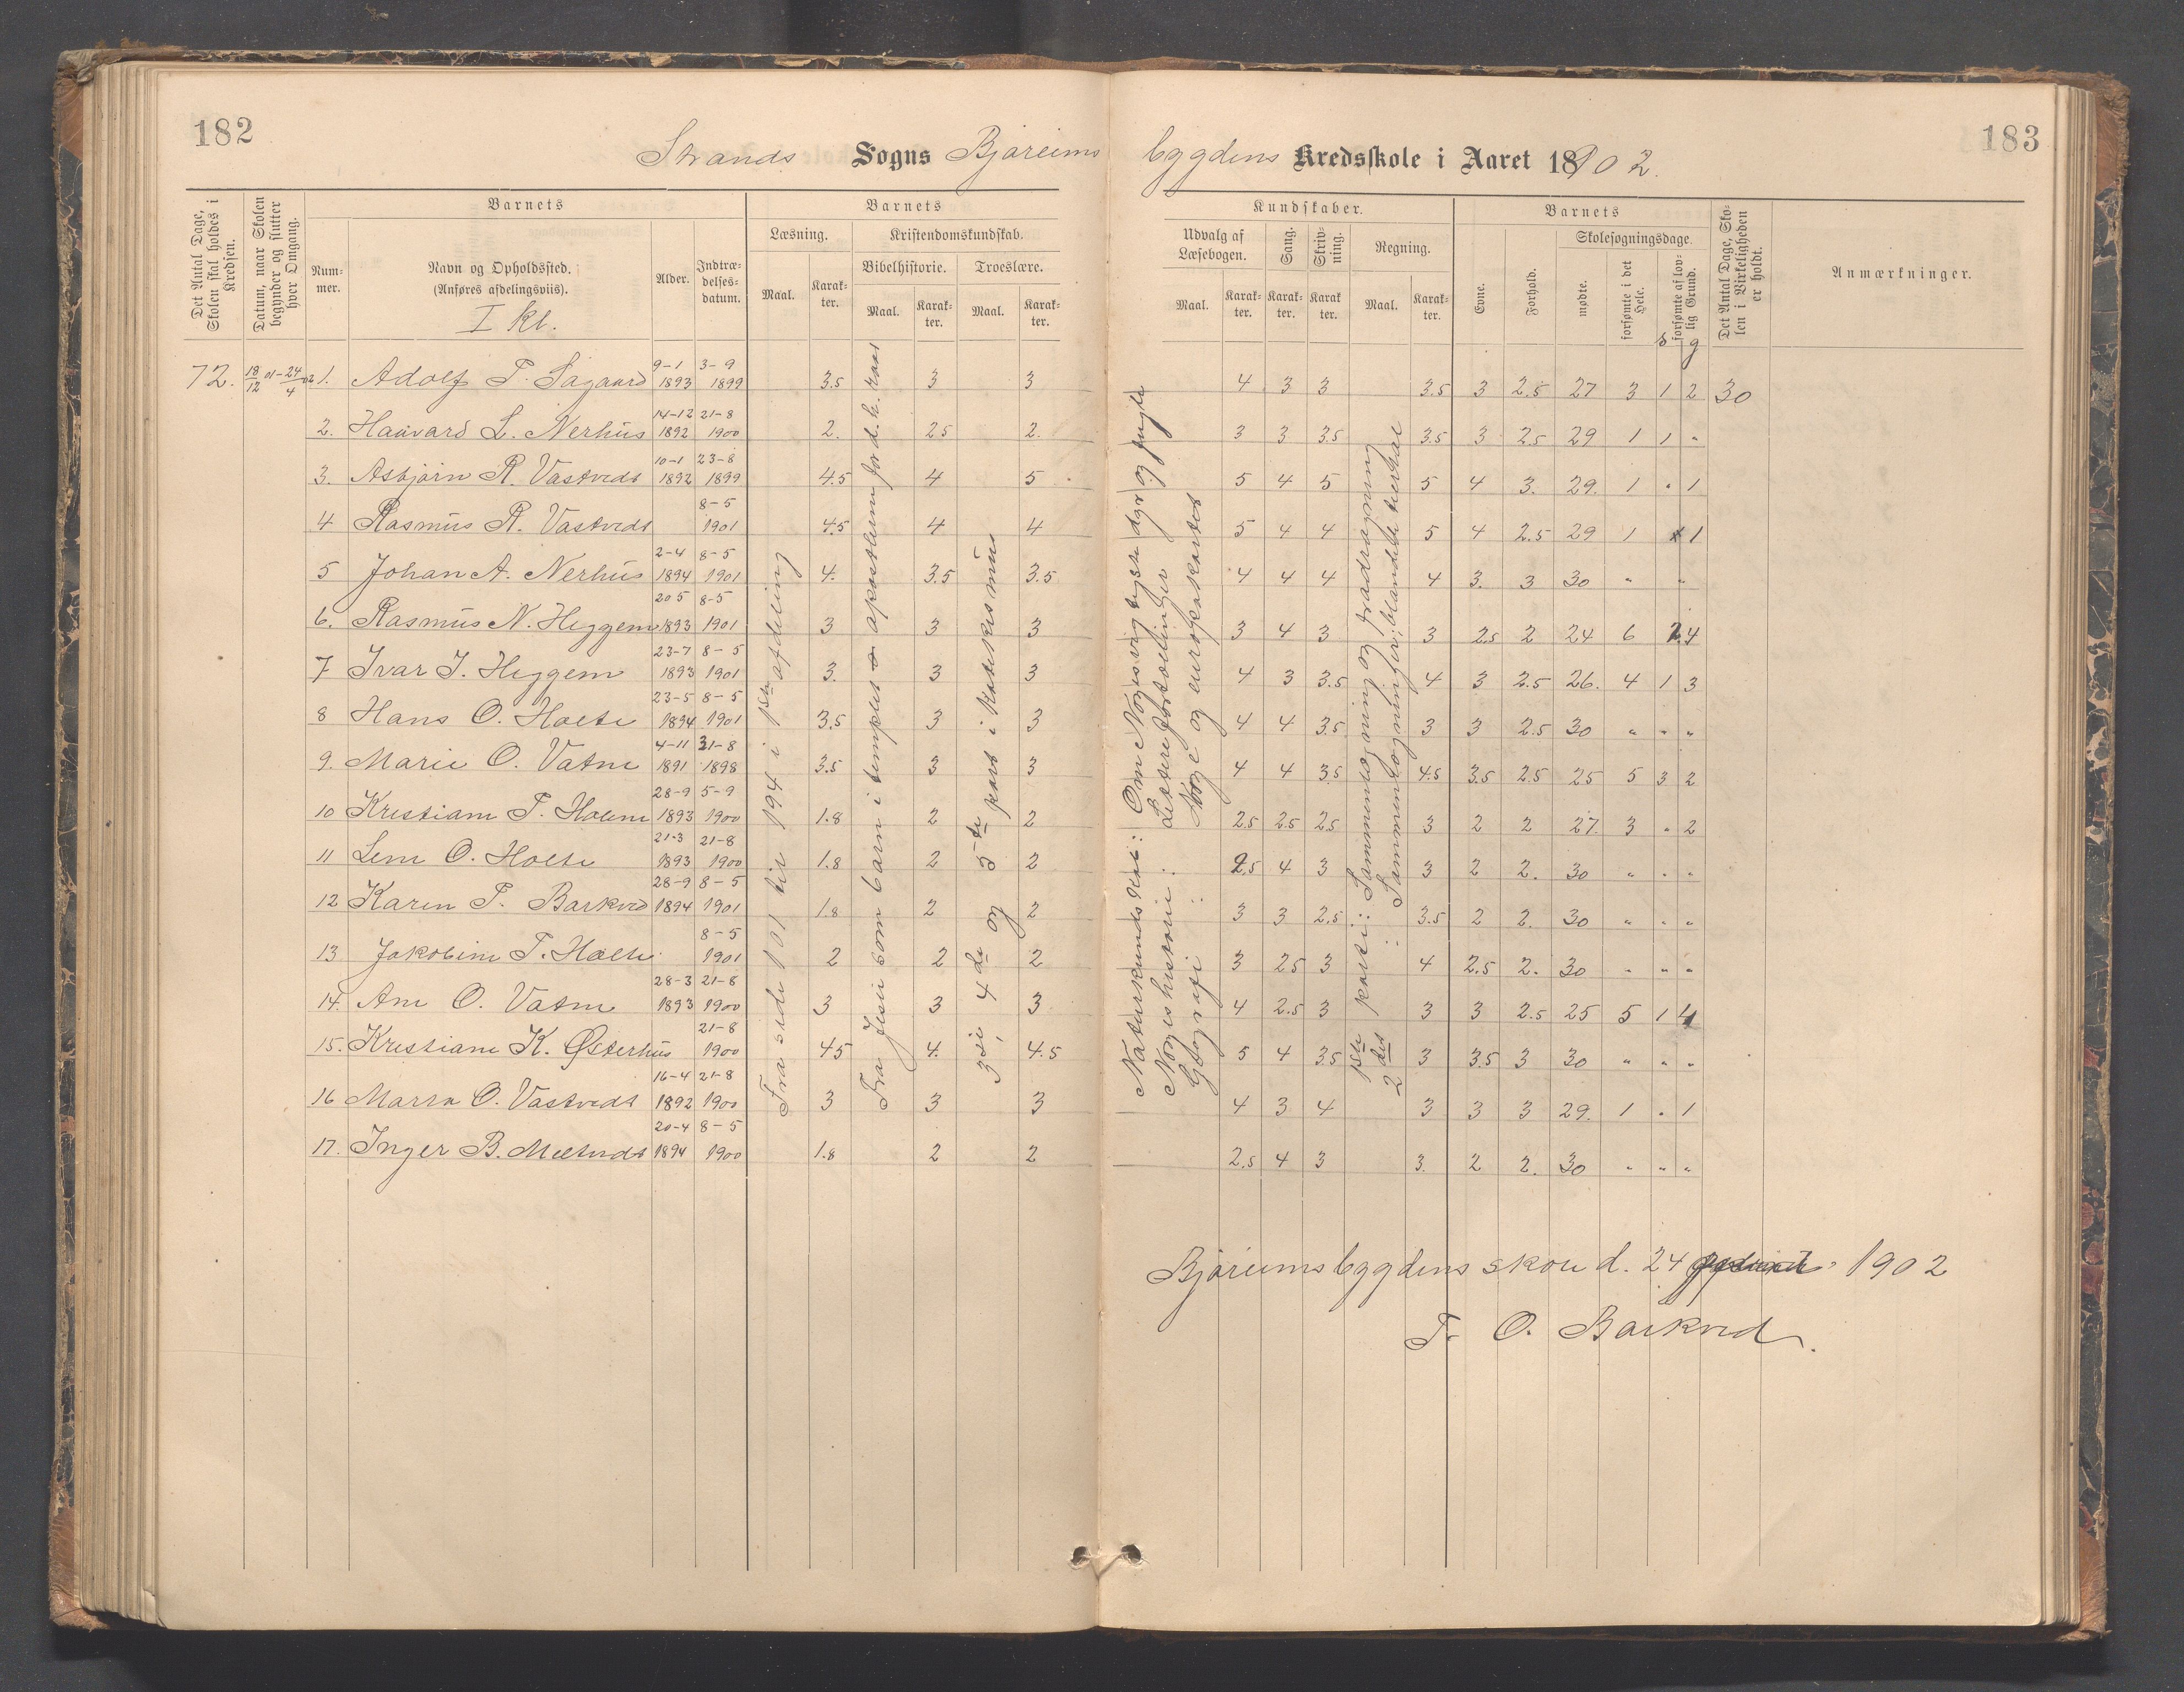 182
Strands Sogns Bjøreims
bygdens Kredsskole i Aaret 18902.
183
Det Antal Dage, Skolen skal holdes i Kredsen.
Datum, naar Skolen begynder og slutter hver Omgang.
Barnets
Nummer.
Navn og Opholdssted.
(Anføres afdelingsviis).
I kl.
Alder.
Indtrædelsesdatum.
Barnets
Læsning.
Maal.
Karakter.
Kristendomskundskab.
Bibelhistorie.
Maal.
Karakter.
Troeslære.
Maal.
Karakter.
Kundskaber.
Udvalg af Læsebogen.
Maal.
Karakter.
Sang.
Karakter.
Skrivning.
Karakter.
Regning.
Maal.
Karakter.
Barnets
Evne.
Forhold.
Skolesøgningsdage.
mødte.
forsømte i det Hele.
forsømte af lovlig Grund.
s g
Det Antal Dage, Skolen i Virkeligheden er holdt.
Anmærkninger.
72. 18/12 01-24/4 02 1. Adolf T. Sagaard 9-1 1893 3-9 1899 3.5 3 3 4 3 3 3.5 3 2.5 27 3 1 2 30
2. Haavard L. Nerhus 14-12 1892 21-8 1900 2. 2.5 2. 3 3 3.5 3.5 3 2.5 29 1 1 "
3. Asbjørn R. Vastvedt 10-1 1892 23-8 1899 4.5 4 5 5 4 5 5 4 3. 29. 1 " 1
4 Rasmus R. Vastvedt 8-5 1901 4.5 4 4 5 4 4 5 4 2.5 29 1 1
5 Johan A. Nerhus 2-4 1894 8-5 1901 4. 3.5 3.5 4 4 4 4 3. 3 30 " "
6. Rasmus N. Heggem 20 5 1893 8-5 1901 3 3 3 3 4 3 3 2.5 2 24 6 2 4
7 Ivar I. Heggem 23-7 1893 8-5 1901 3. 3 3 4 3 3.5 4 3 2.5 26. 4 1 3
8 Hans O. Holte 23-5 1894 8-5 1901 3.5 3 3 4 4 3.5 3 3 2.5 30 " " "
9. Marie O. Vatne 4-11 1891 21-8 1898 3.5 3 3 4 4 3.5 4.5 3.5 2.5 25 5 3 2
10 Kristiane T. Holene 28-9 1893 5-9 1900 1.8 2 2 2.5 2.5 2.5 3 2 2 27. 3 " 2
11 Lene O. Holte 21-3 1893 21-8 1900 1.8 2 2 2.5 4 3 3 2 2. 30 " " "
12 Karen T. Barkved 28-9 1894 8-5 1901 1.8 2 2 3 3 2.5 3.5 2 2. 30 " " "
13 Jakobine T. Holte. 8-5 1901 2 2 2 3 2.5 3 4 2.5 2. 30 " " "
14. Ane O. Vatne 28-3 1893 21-8 1900 3 3 3 4 2.5 3 3 3 2.5 25 5 1 4
15. Kristiane K. Østerhus 21-8 1900 4.5 4. 4.5 5 4 3.5 3 3.5 3 30 " " "
16 Marta O. Vastvedt 16-4 1892 21-8 1900 3 3 3 4 3 4 3 3 3 29. 1 " 1
17. Inger B. Meltvedt 20-4 1894 8-5 1900 1.8 2 2 2.5 4 3 3. 2 2. 30 " " "
Fra side 101 til 194 i 1ste afdeling
Fra Jesus som barn i templet apostlene for d. h. raad
3die, 4de og 5te part i Katekismus
Naturkundskab: Om Norges vigtigste dyr og fugle
Norges historie: Lettere fortællinger
Geografi: Norge og europakartet
1ste part: Sammenlægning og fradragning
2det : Sammenlægninger; blandede tiertal
Bjøreimsbygdens skole d. 24 1902
T. O. Barkved.